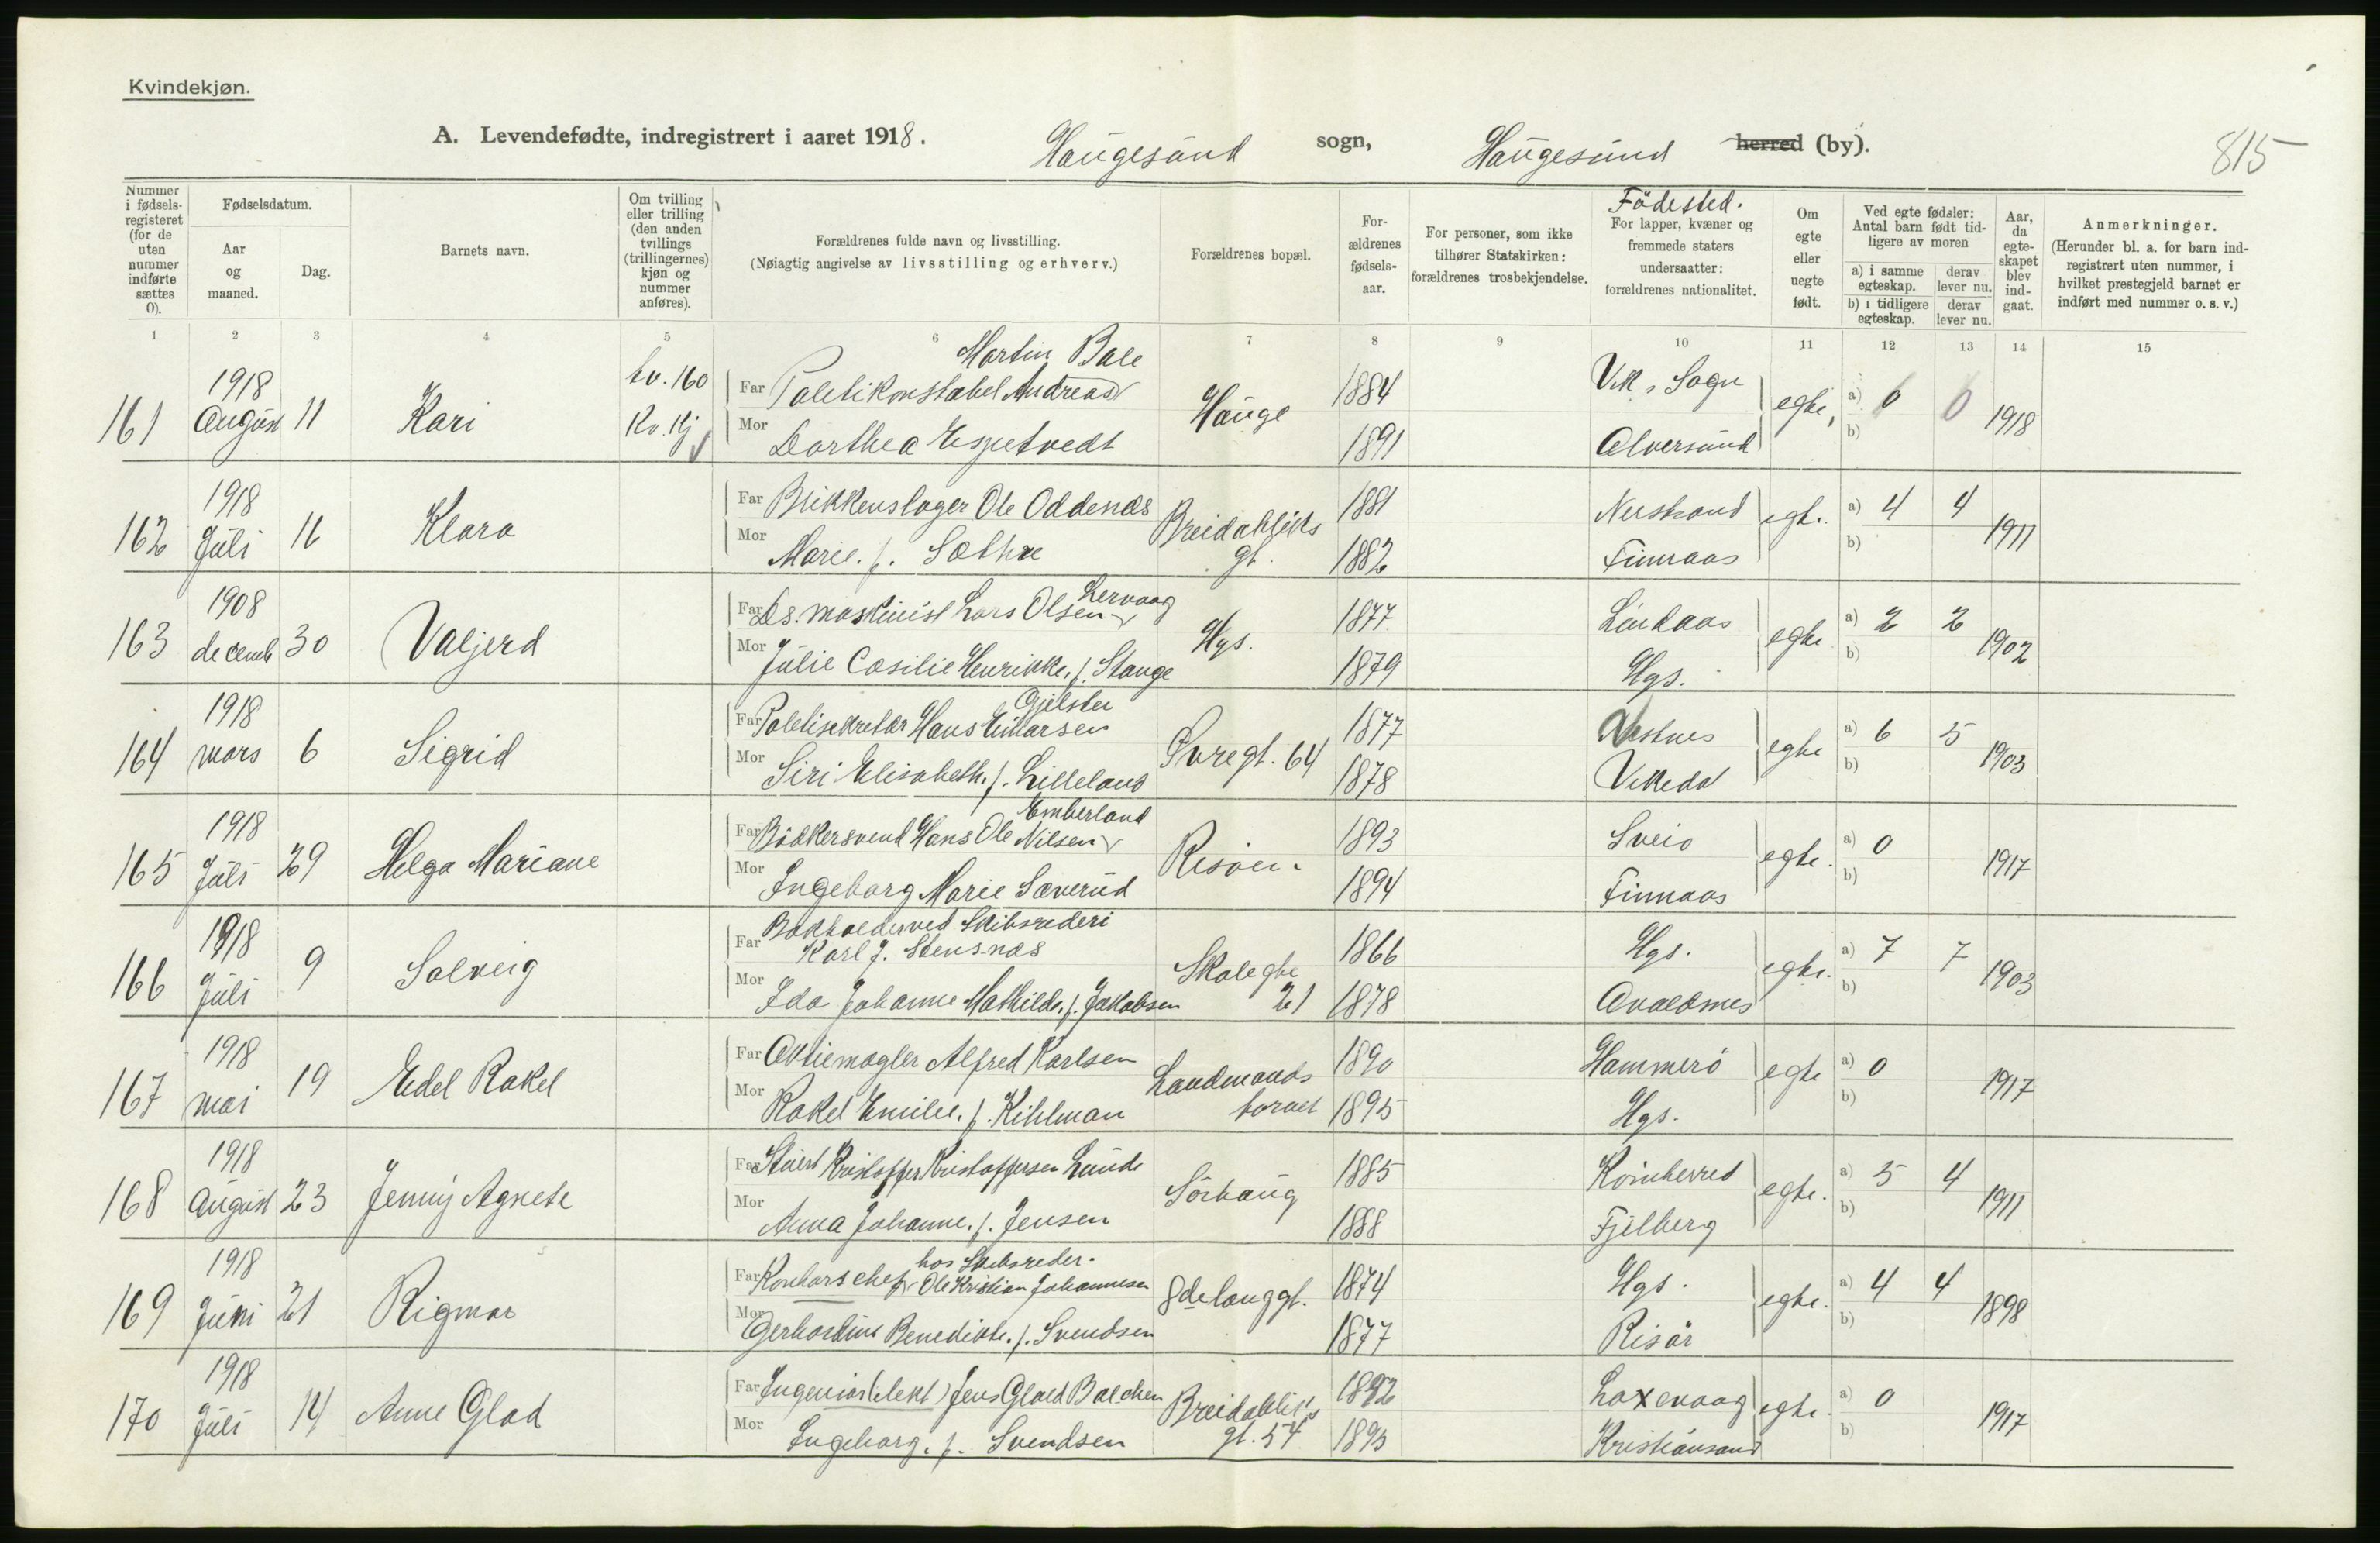 Kvindekjøn.
A. Levendefødte, indregistrert i aaret 1918. Haugesund sogn, Haugesund herred (by). 815
Nummer i fødsels-registeret (for de uten nummer indførte sættes 0).
Fødselsdatum.
Aar og maaned.
Dag.
Barnets navn.
Om tvilling eller trilling (den anden tvillings (trillingernes) kjøn og nummer anføres).
Forældrenes fulde navn og livsstilling.
(Nøiagtig angivelse av livsstilling og erhverv.)
Forældrenes bopæl.
For-ældrenes fødsels-aar.
For personer, som ikke tilhører Statskirken: forældrenes trosbekjendelse.
Födested.
For lapper, kvæner og fremmede staters undersaatter: forældrenes nationalitet.
Om egte eller uegte født.
Ved egte fødsler: Antal barn født tid-ligere av moren
a) i samme egteskap.
derav lever nu.
b) i tidligere egteskap.
derav lever nu.
Aar, da egte-skapet blev ind-gaat.
Anmerkninger.
(Herunder bl. a. for barn ind-registrert uten nummer, i hvilket prestegjeld barnet er indført med nummer o. s. v.)
1 2 3 4 5 6 7 8 9 10 11 12 13 14 15
161 1918 August 11 Kari tv. 160 Kv. Kj
Far Politikonstabel Andreas Martin Bale
Mor Dorthea Espetvedt
Hauge 1884 1891 Vik, Sogn Alversund egte, a) 0 0 b) 1918
162 1918 Juli 16 Klara
Far Blikkenslager Ole Oddenæs
Mor Marie. f. Sæthre
Breidabliks gt. 1881 1882 Nerstrand Finnaas egt. a) 4 4 b) 1911
163 1908 decemb 30 Valjerd
Far Ds. maskinist Lars Olsen Lervaag
Mor Julie Cæsilie Henrikke, f. Stange
Hgs. 1877 1879 Lindaas Hgs. egte a) 2 2 b) 1902
164 1918 mars 6 Sigrid
Far Politisekretær Hans Einarsen Gjelsten
Mor Siri Elisabeth. f. Lilleland
Svregt. 64 1877 1878 Vestnes Vikedal egte a) 6 5 b) 1903
165 1918 Juli 29 Helga Mariane
Far Bökkersvend Hans Ole Nilsen Emberland
Mor Ingeborg Marie Sæverud
Risöen. 1893 1894 Sveio Finnaas egte. a) 0 b) 1917
166 1918 Juli 9 Solveig
Far Bokholder ved Skibsrederi Karl J. Stensnæs
Mor Ida Johanne Mathilde. f. Jakobsen
Skolegte 21 1866 1878 Hgs. Avaldsnes egte. a) 7 7 b) 1903
167 1918 mai 19 Edel Rakel
Far Aktiemægler Alfred Karlsen
Mor Rakel Emilie. f. Kihlman
Landmands torvet 1890 1895 Hammerö Hgs. egte a) 0 b) 1917
168 1918 August 23 Jenny Agnete
Far Stuert Kristoffer Kristoffersen Lunde
Mor Anna Johanne. f. Jensen
Sörhaug 1885 1888 Kvinherred Fjelberg egte. a) 5 4 b) 1911
169 1918 Juni 21 Rigmor
Far Kontorschef hos Skibsreder. Ole Kristian Johannesen
Mor Gerhardine Benedikte. f. Svendsen
8de langgt. 1874 1877 Hgs. Risör egte. a) 4 4 b) 1898
170 1918 Juli 14 Anne Glad
Far Ingeniør (elekt) Jens Glad Balchen
Mor Ingeborg. f. Svendsen
Breidabliks gt. 54 1892 1895 Laxevaag Kristiansand egte. a) 0 b) 1917